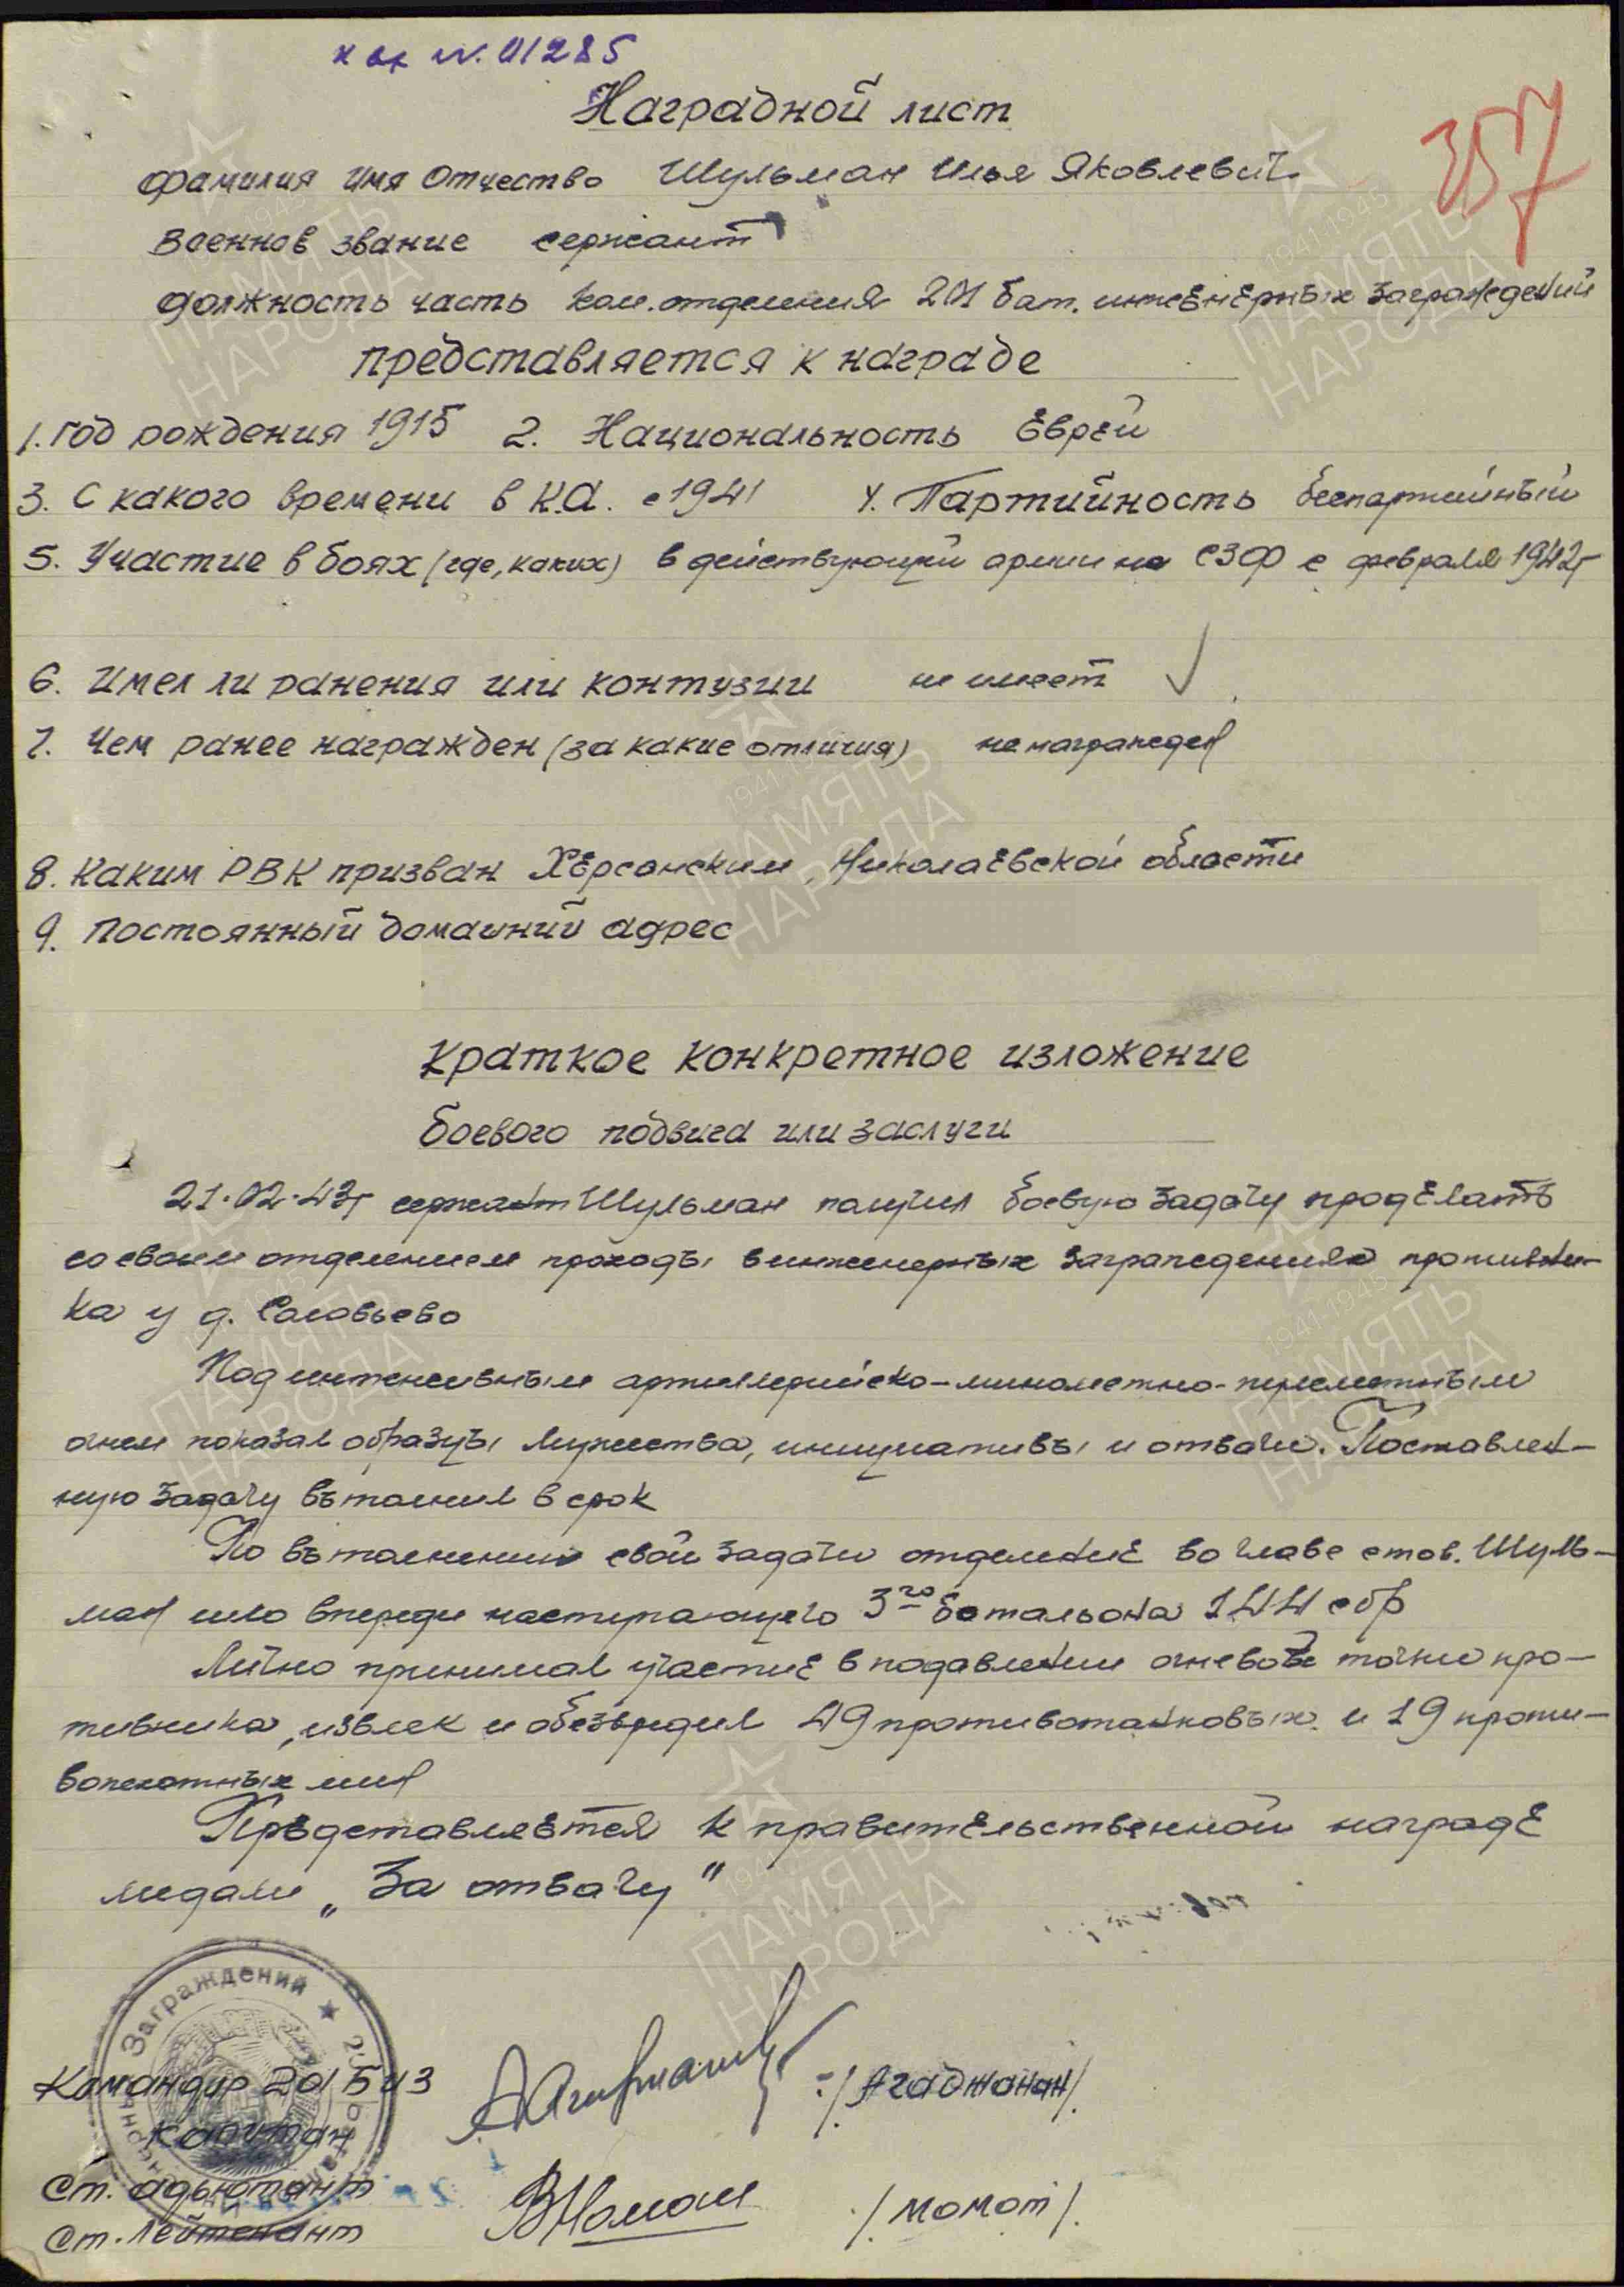 к вх №. 01285
Наградной лист
357
Фамилия Имя Отчество Шульман Илья Яковлевич
Военное звание сержант
Должность часть ком. отделения 201 бат. инженерных заграждений
представляется к награде
1. Год рождения 1915 2. Национальность Еврей
3. С какого времени в К.А. с 1941 4. Партийность беспартийный
5. Участие в боях (где, каких) в действующей армии на СЗФ с февраля 1942г
6. Имел ли ранения или контузии не имеет
7. Чем ранее награжден (за какие отличия) не награжден
8. Каким РВК призван Херсонским, Николаевской области
9. Постоянный домашний адрес
Краткое конкретное изложение
боевого подвига или заслуги
21.02.43г сержант Шульман получил боевую задачу проделать
со своим отделением проходы в инженерных заграждениях противни-
ка у д. Соловьево
Под интенсивным артиллерийско-минометно-пулеметным
огнем показал образцы мужества, инициативы и отваги. Поставлен-
ную задачу выполнил в срок
По выполнении свой задачи отделение во главе с тов. Шуль-
ман шло впереди наступающего 3го батальона 144 сбр
Лично принимал участие в подавлении огневой точки про-
тивника, извлек и обезвредил 49 противотанковых и 19 проти-
вопехотных мин
Представляется к правительственной награде
медали „За отвагу"
Заграждений ★
Командир 201 БИЗ
капитан /Агаджанян/.
Ст. адъютант
ст. Лейтенант /Момот/.
ПАМЯТЬ НАРОДА
1941 1945